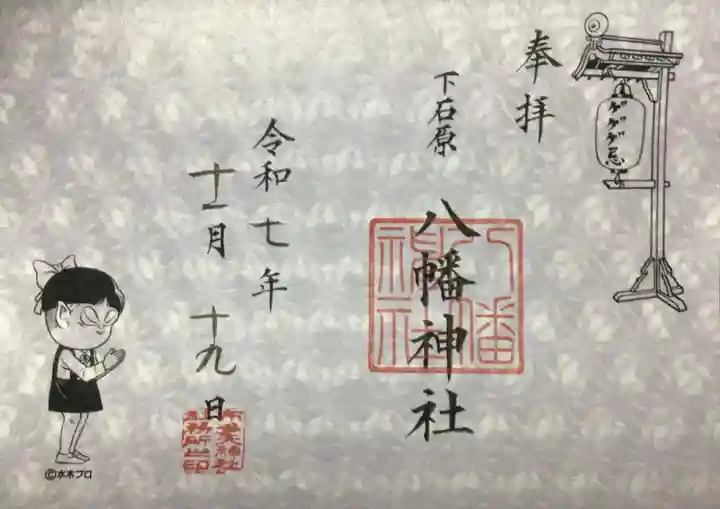 ゲゲゲ忌
奉拝
下石原
八幡神社
八幡神社
令和七年
十一月十九日
布多天神社社務所之印
©水木プロ